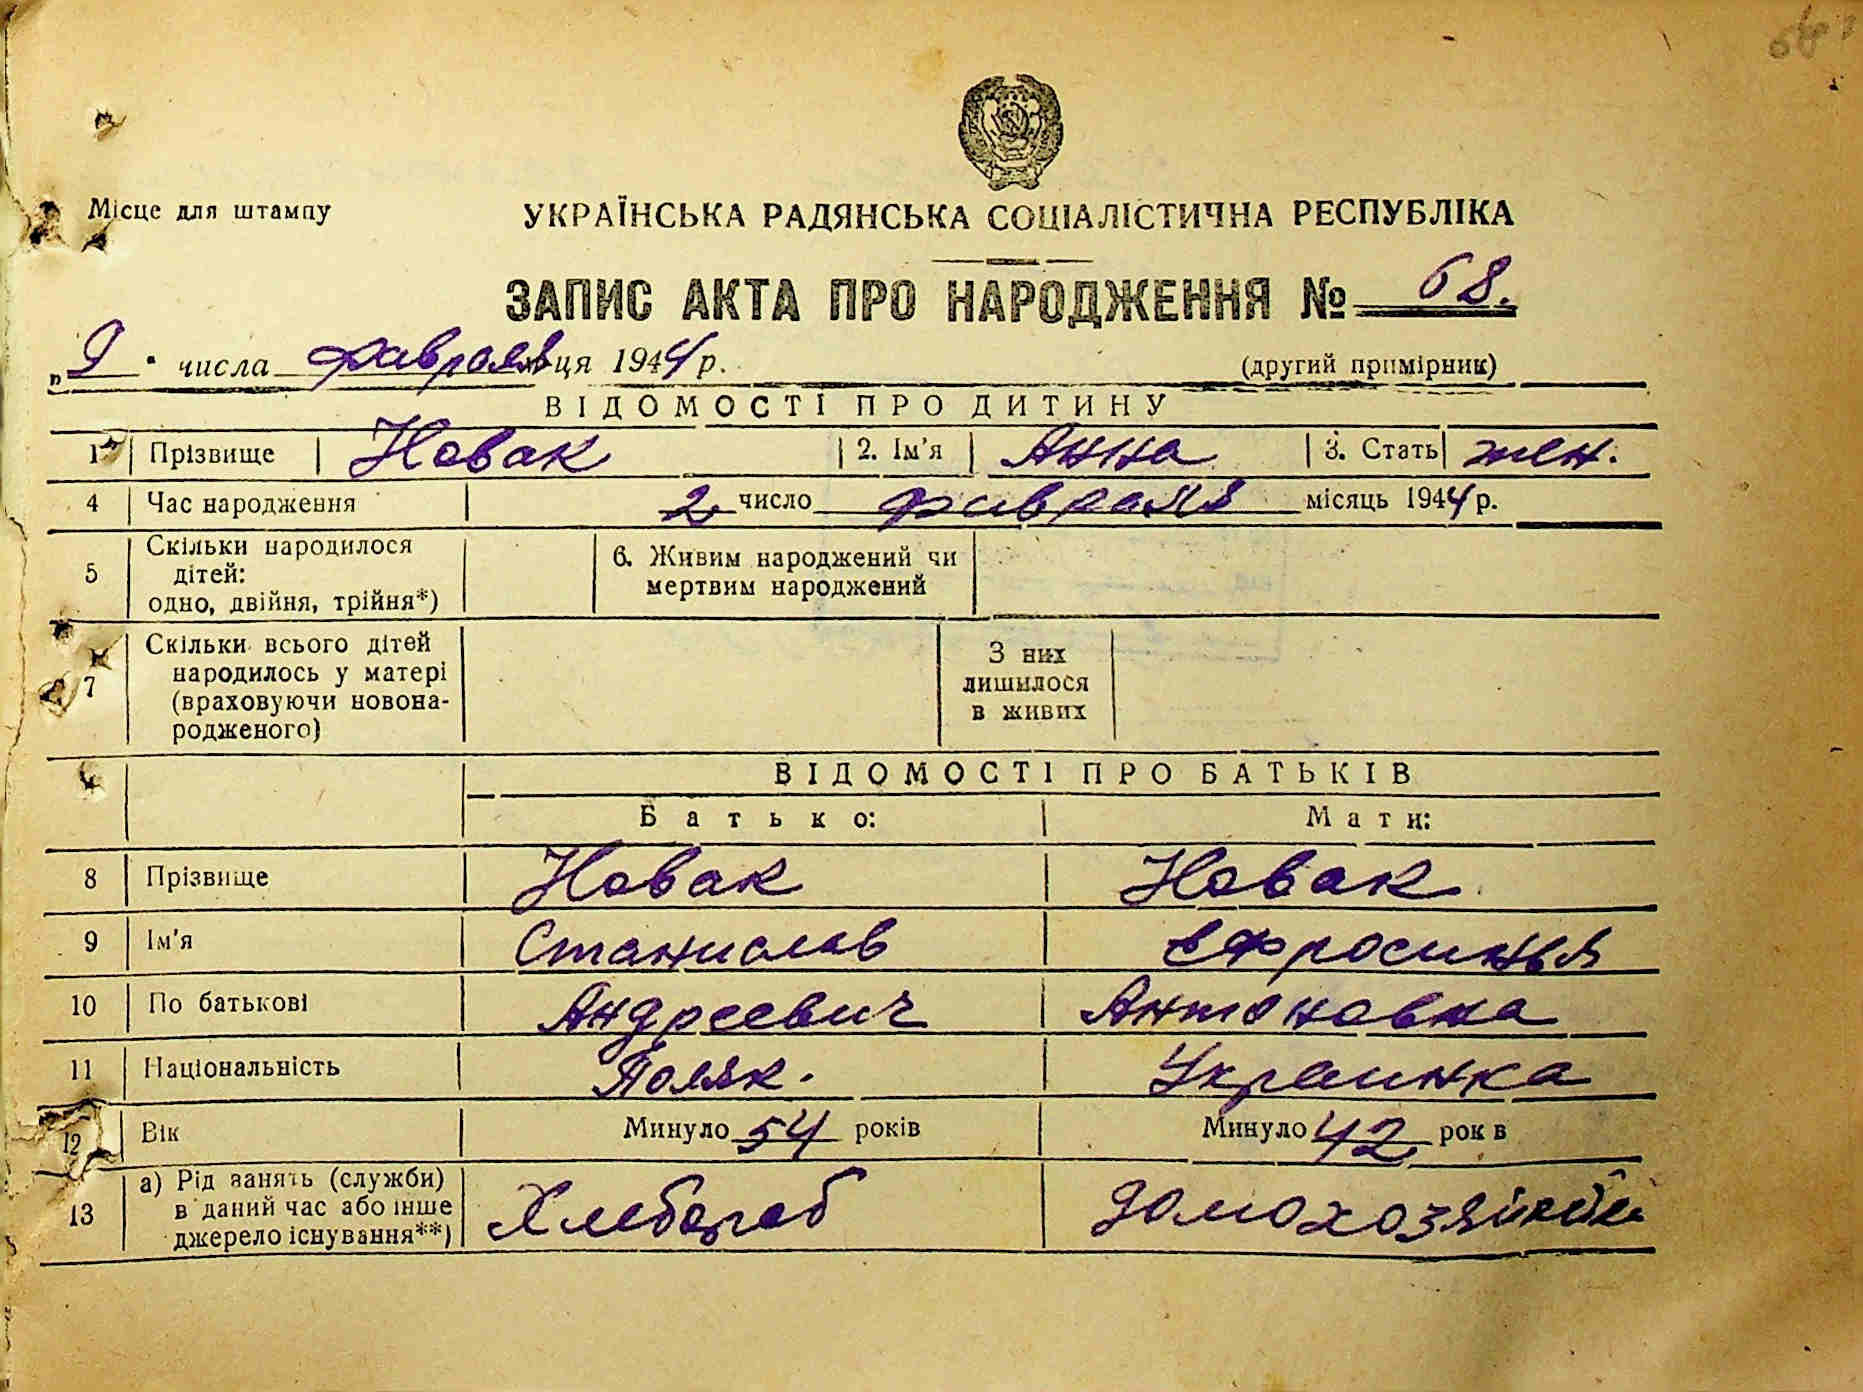 Місце для штампу
УКРАЇНСЬКА РАДЯНСЬКА СОЦІАЛІСТИЧНА РЕСПУБЛІКА
ЗАПИС АКТА ПРО НАРОДЖЕННЯ № 68.
„9" числа февраля м-ця 1944 р.
(другий примірник)
ВІДОМОСТІ ПРО ДИТИНУ
1 Прізвище Новак 2. Ім'я Анна 3. Стать жен.
4 Час народження 2 число февраля місяць 1944 р.
5 Скільки народилося дітей: одно, двійня, трійня*) 6. Живим народжений чи мертвим народжений
7 Скільки всього дітей народилось у матері (враховуючи новонародженого) З них лишилося в живих
ВІДОМОСТІ ПРО БАТЬКІВ
Батько: Мати:
8 Прізвище Новак Новак
9 Ім'я Станислав Ефросинья
10 По батькові Андреевич Антоновна
11 Національність Поляк. Украинка
12 Вік Минуло 54 років Минуло 42 рок в
13 а) Рід занять (служби) в даний час або інше джерело існування**) Хлебороб домохозяйка